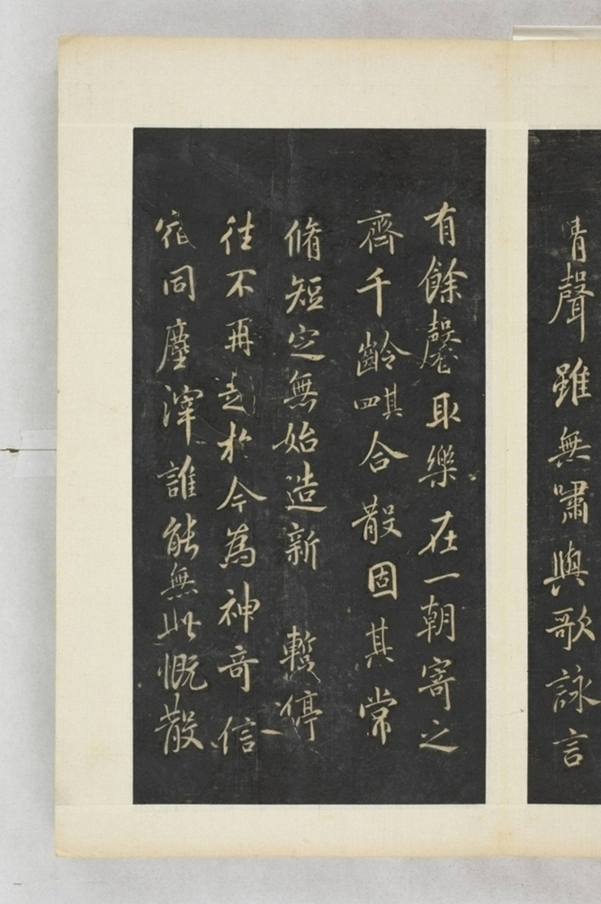 清聲雖無嘯與歌詠言
有餘馨取樂在一朝寄之
齊千齡其四合散固其常
脩短定無始造新 暫停
往不再起於今為神奇信
宿同塵滓誰能無此慨散